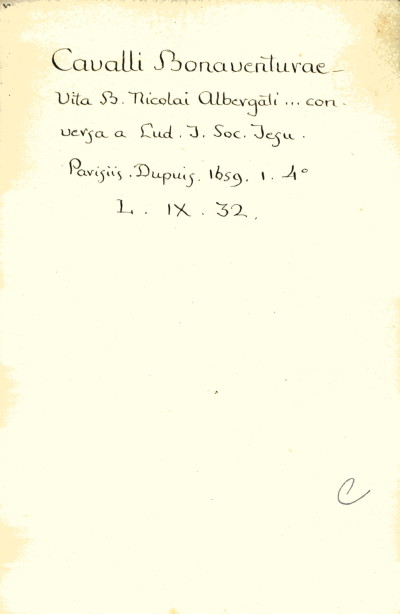 Cavalli Bonaventurae -
Vita B. Nicolai Albergati ... con-
versa a Lud. J. Soc. Jesu.
Parisiis. Dupuis. 1659. 1. 4°
L. IX. 32.
C